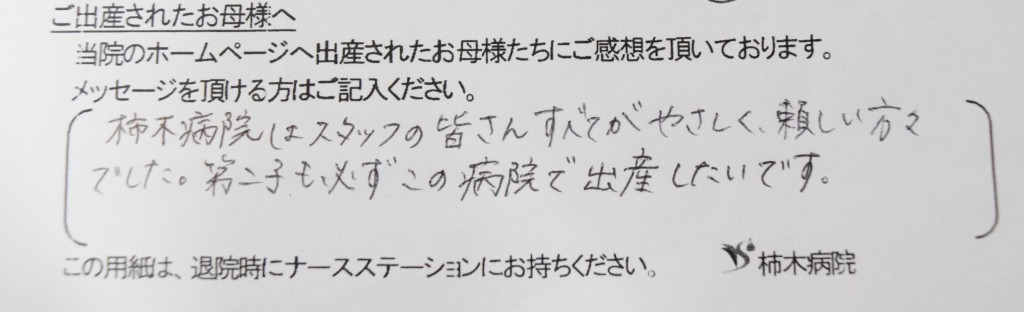 ご出産されたお母様へ
当院のホームページへ出産されたお母様たちにご感想を頂いております。
メッセージを頂ける方はご記入ください。
柿木病院はスタッフの皆さんすべてがやさしく、頼しい方々
でした。第二子も必ずこの病院で出産したいです。
この用紙は、退院時にナースステーションにお持ちください。
柿木病院